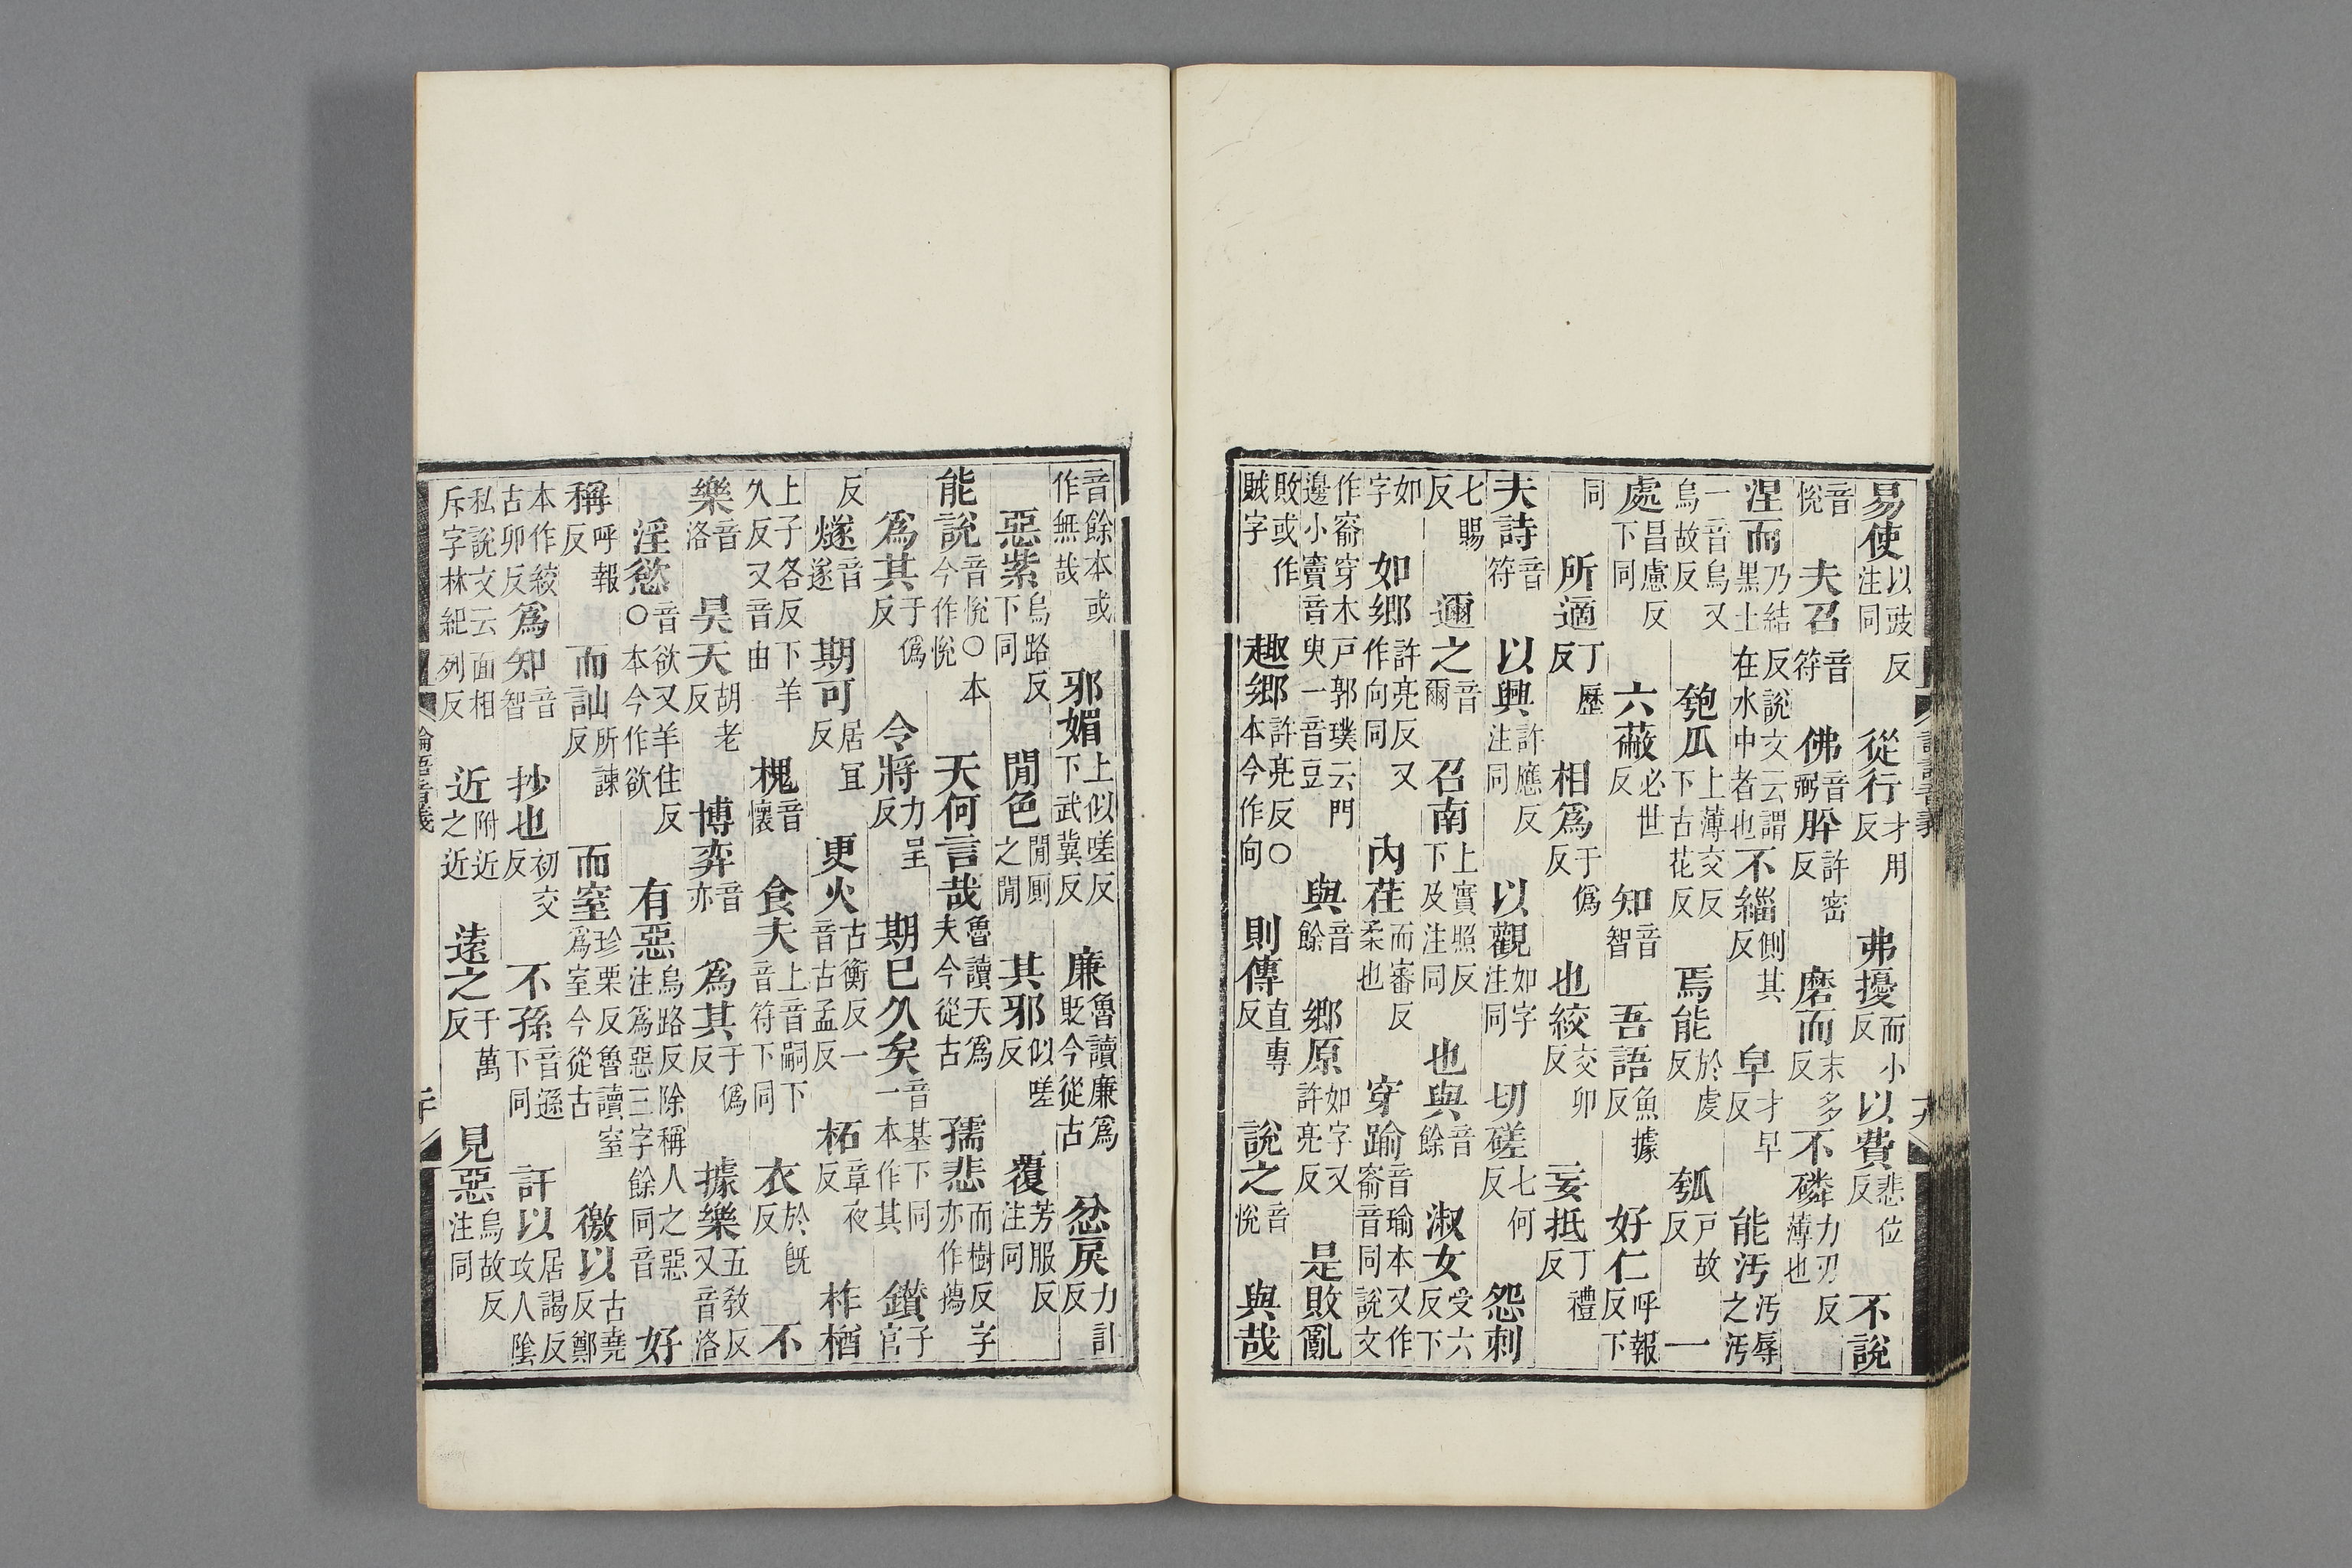 易使以豉反注同從行才用反弗擾而小反以費悲位反不說
音悅夫召音符佛音弼肸許密反磨而末多反不磷力刃反薄也
涅而乃結反說文云謂黑土在水中者也不緇側其反皁才早反能汚汚辱之汚
一音烏又烏故反匏瓜上薄交反下古花反焉能於虔反瓠戸故反一
處昌慮反下同六蔽必世反知音智吾語魚據反好仁呼報反下
同所適丁歷反相爲于僞反也絞交卯反妄抵丁禮反
夫詩音符以興許應反注同以觀如字注同切磋七何反怨刺
七賜反邇之音爾召南上實照反下及注同也與音餘淑女受六反下
如字如鄉許亮反又作向同內荏而審反柔也穿踰音瑜本又作窬音同說文
作窬穿木戸郭璞云門邊小竇音臾一音豆與音餘鄉原如字又許亮反是敗亂
敗或作賊字趣鄉許亮反○本今作向則傳直專反說之音悅與哉
音餘本或作無哉邪媚上似嗟反下武冀反廉魯讀廉爲貶今從古忿戾力計反
惡紫烏路反下同閒色閒厠之閒其邪似嗟反覆芳服反注同
能說音悅○本今作悅天何言哉魯讀天爲夫今從古孺悲而樹反字亦作㨒
爲其于僞反令將力呈反期已久矣音基下同一本作其鑽子官
反燧音遂期可居宜反更火古衡反一音古孟反柘章夜反柞楢
上子各反下羊久反又音由槐音懷食夫上音嗣下音符下同衣於旣反不
樂音洛昊天胡老反博弈音亦爲其于僞反據樂五敎反又音洛
淫慾音欲又羊住反○本今作欲有惡烏路反除稱人之惡注爲惡三字餘同音好
稱呼報反而訕所諫反而窒珍栗反魯讀窒爲室今從古徼以古堯反鄭
本作絞古卯反爲知音智抄也初交反不孫音遜下同訐以居謁反攻人陰
私說文云面相斥字林紀列反近附近之近遠之于萬反見惡烏故反注同
論語音義